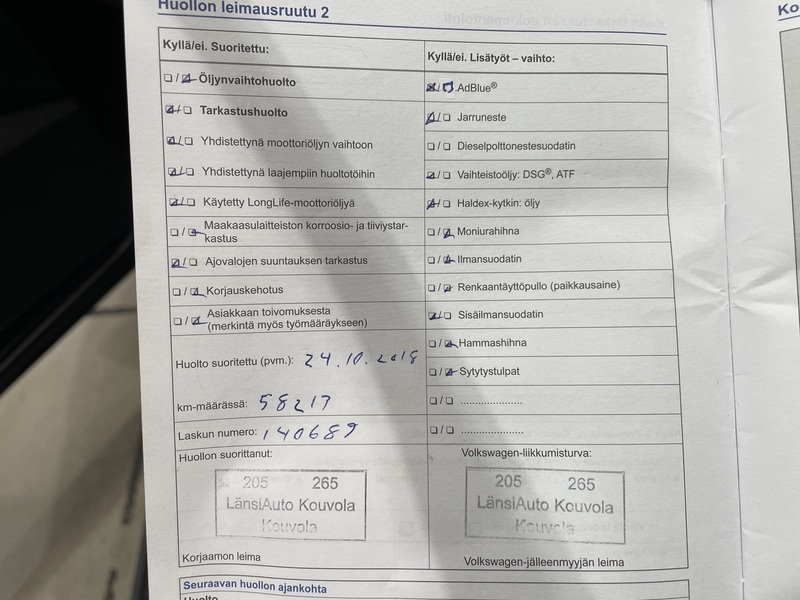 Huollon leimausruutu 2
Ko
Kyllä/ei. Suoritettu:
☐ / ☑ Öljynvaihtohuolto
☑ / ☐ Tarkastushuolto
☑ / ☐ Yhdistettynä moottoriöljyn vaihtoon
☑ / ☐ Yhdistettynä laajempiin huoltotöihin
☑ / ☐ Käytetty LongLife-moottoriöljyä
☐ / ☑ Maakaasulaitteiston korroosio- ja tiiviystar-
kastus
☑ / ☐ Ajovalojen suuntauksen tarkastus
☐ / ☑ Korjauskehotus
☐ / ☑ Asiakkaan toivomuksesta
(merkintä myös työmääräykseen)
Huolto suoritettu (pvm.): 24.10.2018
km-määrässä: 58217
Laskun numero: 140689
Huollon suorittanut:
205 265
LänsiAuto Kouvola
Kouvola
Korjaamon leima
Kyllä/ei. Lisätyöt – vaihto:
☑ / ☑ AdBlue®
☑ / ☐ Jarruneste
☐ / ☐ Dieselpolttonestesuodatin
☑ / ☐ Vaihteistoöljy: DSG®, ATF
☑ / ☐ Haldex-kytkin: öljy
☐ / ☑ Moniurahihna
☐ / ☑ Ilmansuodatin
☐ / ☑ Renkaantäyttöpullo (paikkausaine)
☑ / ☐ Sisäilmansuodatin
☐ / ☑ Hammashihna
☐ / ☑ Sytytystulpat
☐ / ☐ ......................
☐ / ☐ ......................
Volkswagen-liikkumisturva:
205 265
LänsiAuto Kouvola
Kouvola
Volkswagen-jälleenmyyjän leima
Seuraavan huollon ajankohta
Huolto